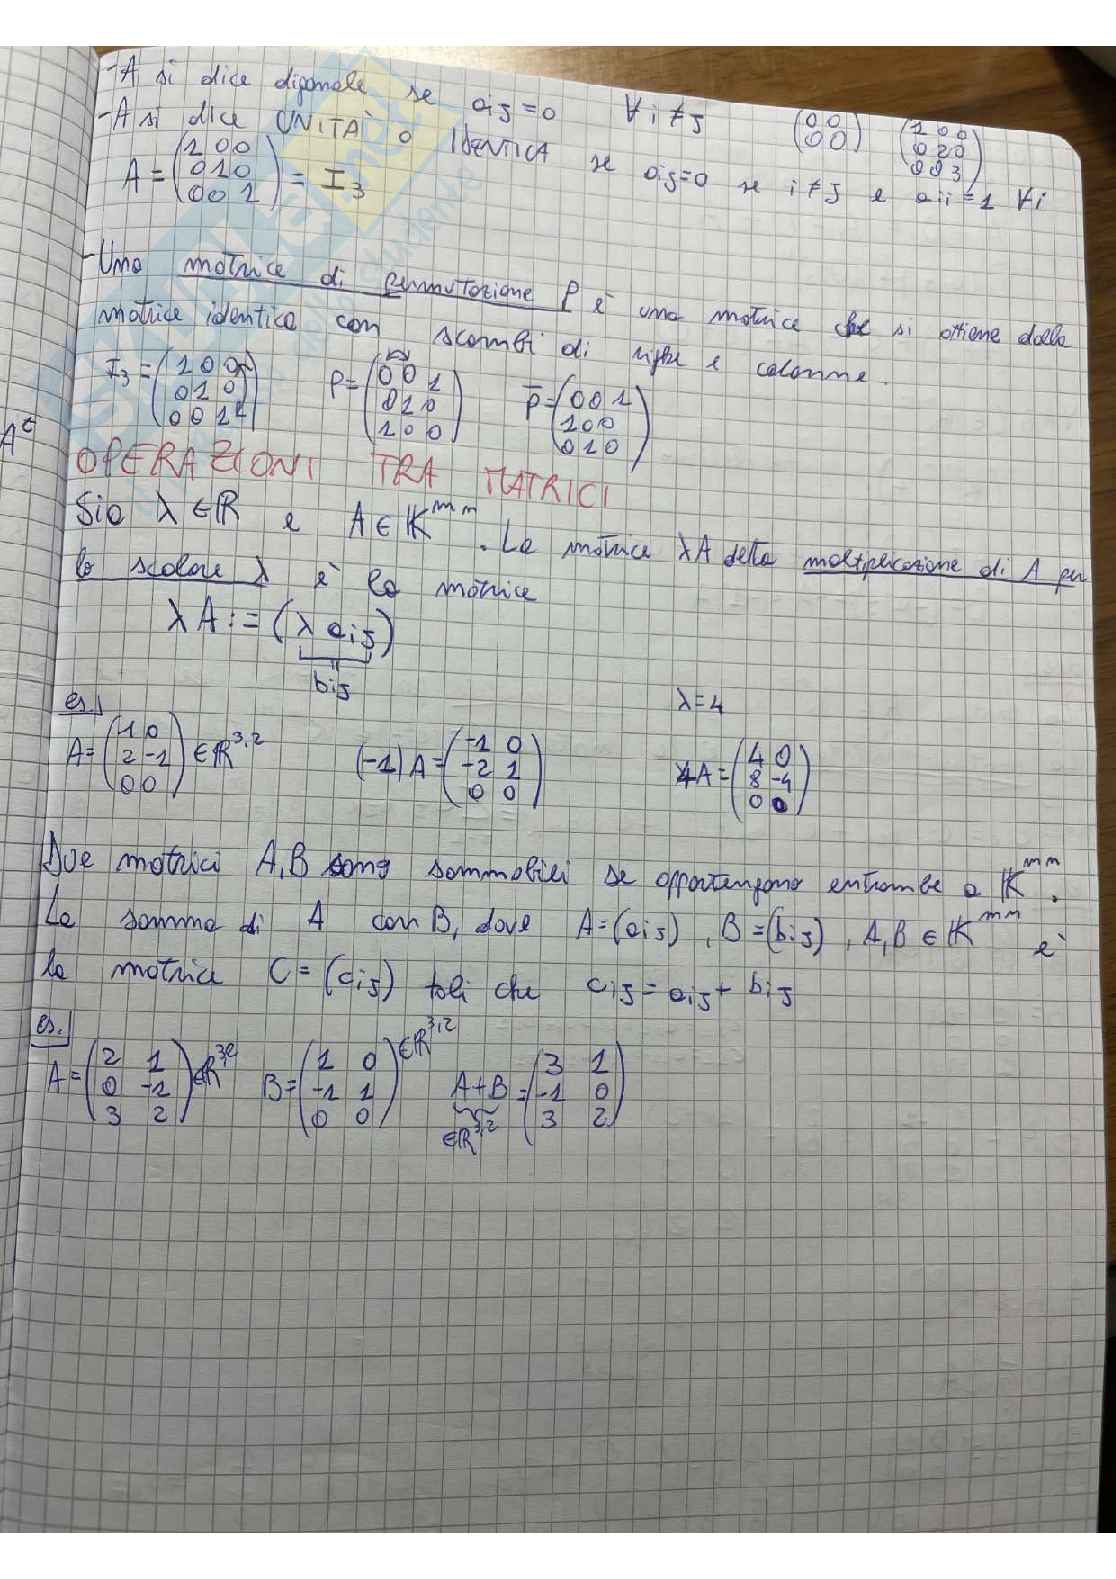 -A si dice digonale se aij=0 ∀i≠j (0 0 / 0 0) (1 0 0 / 0 2 0 / 0 0 3)
-A si dice UNITÀ o IDENTICA se aij=0 se i≠j e aii=1 ∀i
A=(1 0 0 / 0 1 0 / 0 0 1) = I3
-Una matrice di permutazione P è una matrice che si ottiene dalla
matrice identica con scambi di righe e colonne.
I3=(1 0 0 / 0 1 0 / 0 0 1) P=(0 0 1 / 0 1 0 / 1 0 0) P̅=(0 0 1 / 1 0 0 / 0 1 0)
A^t
OPERAZIONI TRA MATRICI
Sia λ∈ℝ e A∈𝕂^mn. La matrice λA detta moltiplicazione di A per
lo scalare λ è la matrice
λA:=(λaij)
bij
es.
λ=4
A=(1 0 / 2 -1 / 0 0) ∈ℝ^3,2 (-1)A=(-1 0 / -2 1 / 0 0) 4A=(4 0 / 8 -4 / 0 0)
Due matrici A,B sono sommabili se appartengono entrambe a 𝕂^mn.
La somma di A con B, dove A=(aij), B=(bij), A,B∈𝕂^mn è
la matrice C=(cij) tali che cij=aij+bij
es.
A=(2 1 / 0 -1 / 3 2) ∈ℝ^3,2 B=(1 0 / -1 1 / 0 0) ∈ℝ^3,2 A+B=(3 1 / -1 0 / 3 2)
∈ℝ^3,2